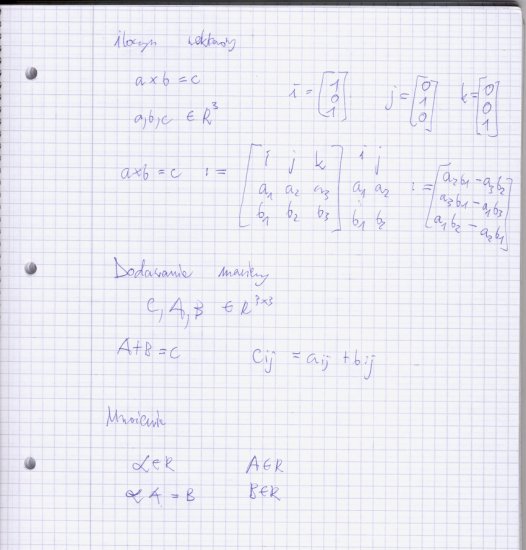 iloczyn wektorowy
a×b = c
a,b,c ∈ R³
i = [1 0 1] j = [0 1 0] k = [0 0 1]
a×b = c := [i j k a₁ a₂ a₃ b₁ b₂ b₃] i j a₁ a₂ b₁ b₂ := [a₂b₁ - a₃b₂ a₃b₁ - a₁b₃ a₁b₂ - a₂b₁]
Dodawanie macierzy
C, A, B ∈ R³ˣ³
A+B = C cij = aij + bij
Mnożenie
α∈R A∈R
αA = B B∈R